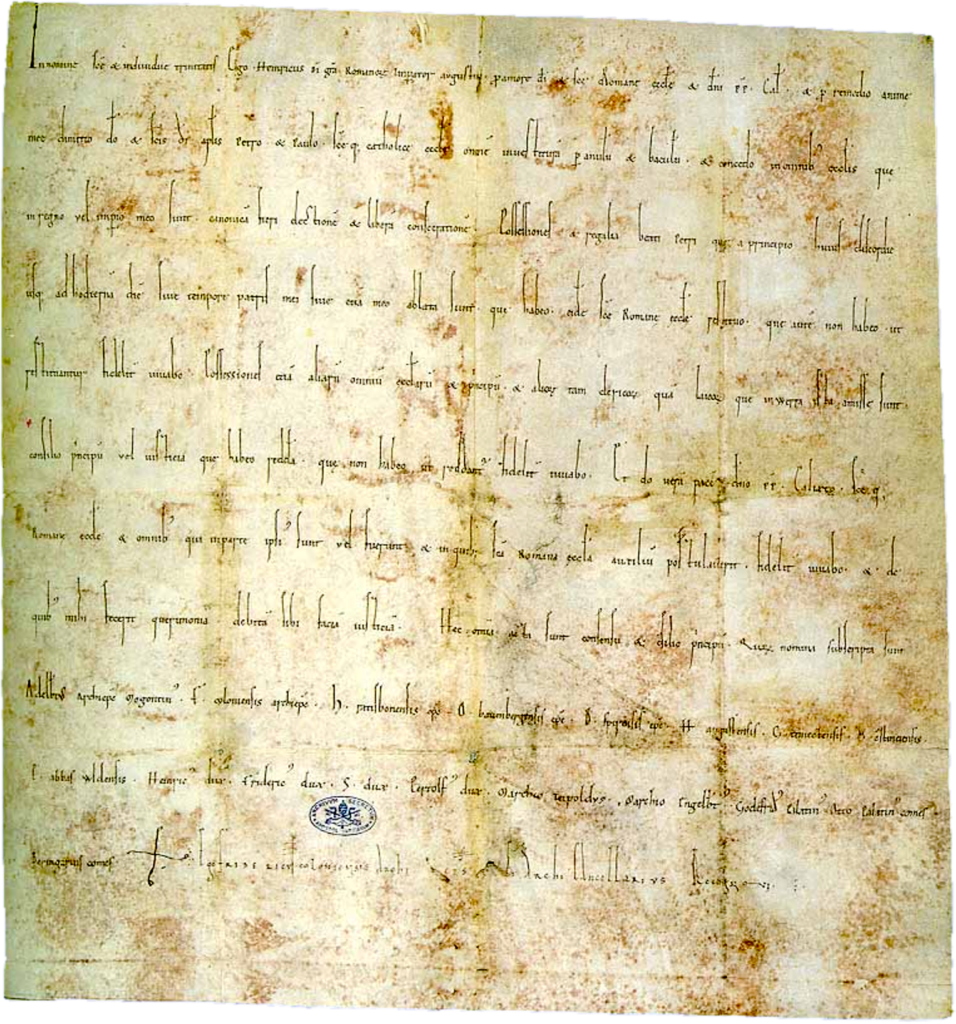 In nomine scę & individuę trinitatis Ego Heinricus di gra Romanorꝝ Imperator augustus. p amore di & scę Romanę ecclę & dni pp. Cal. & p remedio animę
meę dimitto do & scis di aplis Petro & Paulo. scęq; catholicę ecclę omnē investiturā p anulū & baculū. & concedo in omnib; ecclis quę
in regno vel impio meo sunt. canonicā fieri electionē & liberā consecrationē. Possessiones & regalia beati Petri quę a principio huius discordię
usq; ad hodiernā diē sive tempore patris mei sive etiā meo ablata sunt. quę habeo. eidē scę Romanę ecclę restituo. quę autē non habeo. ut
restituantur fidelit iuvabo. Possessiones etiā aliarū omniū ecclarū & pncipū. & alioꝝ tam clericoꝝ quā laicoꝝ quę in werra ista amissę sunt.
consilio pncipū vel iusticia quę habeo reddā. quę non habeo ut reddant fidelit iuvabo. Et do verā pacē dno pp. Calixto. scęq;
Romanę ecclę & omnib; qui in parte ipsi sunt vel fuerunt. & in quib; sca Romana eccla auxiliū postulaverit. fidelit iuvabo. & de
quib; mihi fecerit querimoniā debitā sibi faciā iusticiā. Hec omia acta sunt consensu & cilio pncipū. Quoꝝ nomina subscripta sunt
Adelbtus archiepc Mogontin. F. coloniensis archiepc. H. ratisbonensis epc. O bauenbergensis epc. B. spirensis epc. H augustensis. G. traiectensis. O. constanciensis.
E. abbas wldensis. Heinric; dux. Frideric; dux. S. dux. Pertolf; dux. Marchio teipoldus. Marchio Engelbt. Godefrid Palatin; Otto Palatin; comes
Beringarius comes Fridericus coloniensis archi eps & archi Cancellarius Recognovi
ARCHIVVM SECRETVM